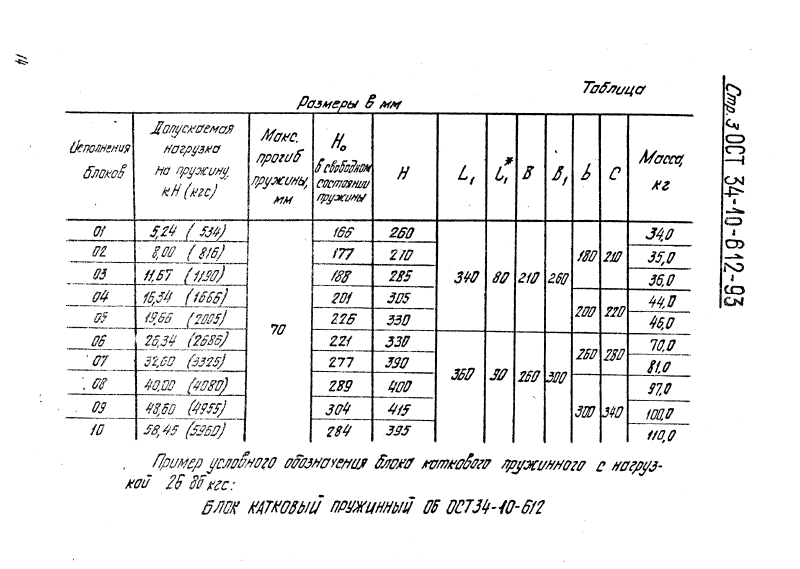 14
Стр. 3 ОСТ 34-10-612-93
Таблица
Размеры в мм
Исполнения блоков | Допускаемая нагрузка на пружину, кН (кгс) | Макс. прогиб пружины, мм | H₀ в свободном состоянии пружины | H | L₁ | l₁* | B | B₁ | b | C | Масса, кг
01 | 5,24 (534) | 70 | 166 | 260 | 340 | 80 | 210 | 260 | 180 | 210 | 34,0
02 | 8,00 (816) | 177 | 270 | 35,0
03 | 11,67 (1190) | 188 | 285 | 36,0
04 | 16,34 (1666) | 201 | 305 | 200 | 220 | 44,0
05 | 19,66 (2005) | 226 | 330 | 46,0
06 | 26,34 (2686) | 221 | 330 | 360 | 90 | 260 | 300 | 260 | 280 | 70,0
07 | 32,60 (3325) | 277 | 390 | 81,0
08 | 40,00 (4080) | 289 | 400 | 300 | 340 | 97,0
09 | 48,60 (4955) | 304 | 415 | 100,0
10 | 58,45 (5960) | 284 | 395 | 110,0
Пример условного обозначения блока каткового пружинного с нагруз-
кой 26 86 кгс:
БЛОК КАТКОВЫЙ ПРУЖИННЫЙ 06 ОСТ34-10-612